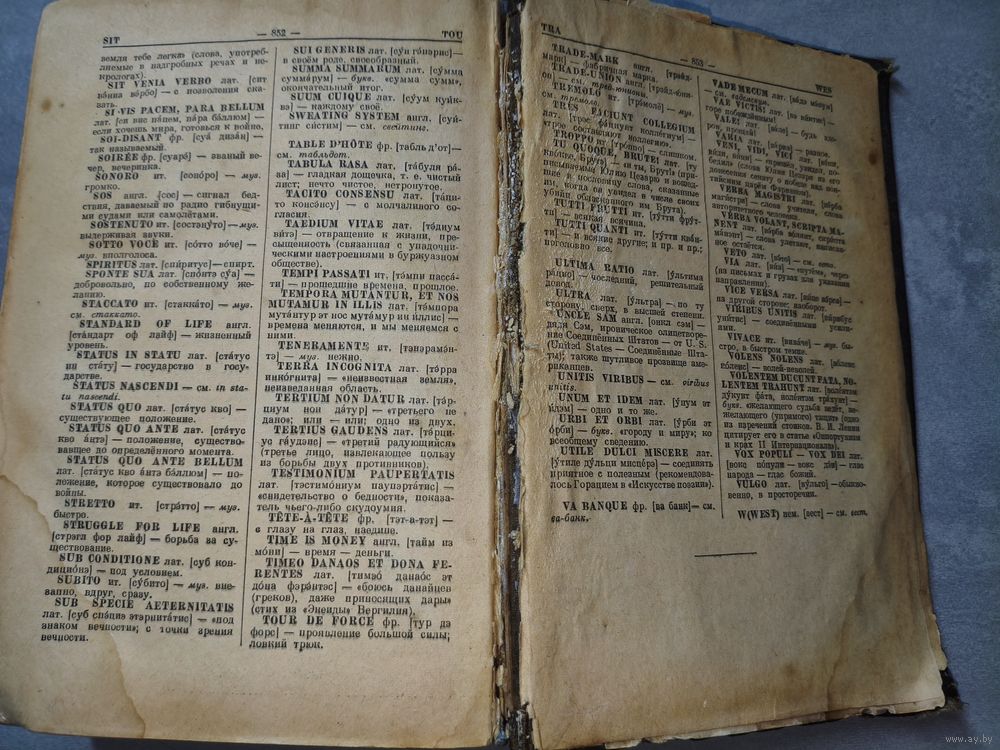 SIT
— 852 —
TOU
земля тебе легка» (слова, употреб-
ляемые в надгробных речах и не-
крологах).
SIT VENIA VERBO лат. [сит
вэ́ниа вэ́рбо] — с позволения ска-
зать.
SI VIS PACEM, PARA BELLUM
лат. [си вис па́цем, па́ра бэ́ллюм] —
если хочешь мира, готовься к войне.
SOI-DISANT фр. [суа́ диза́н] —
так называемый.
SOIRÉE фр. [суарэ́] — званый ве-
чер, вечеринка.
SONORO ит. [соно́ро] — муз.
громко.
SOS англ. [сос] — сигнал бед-
ствия, даваемый по радио гибнущи-
ми судами или самолётами.
SOSTENUTO ит. [состэну́то] — муз.
выдерживая звуки.
SOTTO VOCE ит. [со́тто во́че] —
муз. вполголоса.
SPIRITUS лат. [спи́ритус] — спирт.
SPONTE SUA лат. [спо́нтэ су́а] —
добровольно, по собственному же-
ланию.
STACCATO ит. [стакка́то] — муз.
см. стаккато.
STANDARD OF LIFE англ.
[ста́ндарт оф лайф] — жизненный
уровень.
STATUS IN STATU лат. [ста́тус
ин ста́ту] — государство в госу-
дарстве.
STATUS NASCENDI — см. in sta-
tu nascendi.
STATUS QUO лат. [ста́тус кво] —
существующее положение.
STATUS QUO ANTE лат. [ста́тус
кво а́нтэ] — положение, существо-
вавшее до определённого момента.
STATUS QUO ANTE BELLUM
лат. [ста́тус кво а́нтэ бэ́ллюм] — по-
ложение, которое существовало до
войны.
STRETTO ит. [стрэ́тто] — муз.
быстро.
STRUGGLE FOR LIFE англ.
[стрэгл фор лайф] — борьба за су-
ществование.
SUB CONDITIONE лат. [суб кон-
дицио́нэ] — под условием.
SUBITO ит. [су́бито] — муз. вне-
запно, вдруг, сразу.
SUB SPECIE AETERNITATIS
лат. [суб спэ́циэ этэрнита́тис] — «под
знаком вечности»; с точки зрения
вечности.
SUI GENERIS лат. [су́и гэ́нэрис] —
в своём роде, своеобразный.
SUMMA SUMMARUM лат. [су́мма
сумма́рум] — букв. «сумма сумм»,
окончательный итог.
SUUM CUIQUE лат. [су́ум куи́к-
вэ] — каждому своё.
SWEATING SYSTEM англ. [суй-
тинг си́стим] — см. свейтинг.
TABLE D'HÔTE фр. [табль д'от] —
см. табльдот.
TABULA RASA лат. [та́була ра́-
за] — гладкая дощечка, т. е. чистый
лист; нечто чистое, нетронутое.
TACITO CONSENSU лат. [та́ци-
то консэ́нсу] — с молчаливого со-
гласия.
TAEDIUM VITAE лат. [тэ́диум
ви́тэ] — отвращение к жизни, пре-
сыщенность (связанная с упадочни-
ческими настроениями в буржуазном
обществе).
TEMPI PASSATI ит. [тэ́мпи пасса́-
ти] — прошедшие времена, прошлое.
TEMPORA MUTANTUR, ET NOS
MUTAMUR IN ILLIS лат. [тэ́мпора
мута́нтур эт нос мута́мур ин и́ллис] —
времена меняются, и мы меняемся с
ними.
TENERAMENTE ит. [тэнэрамэ́н-
тэ] — муз. нежно.
TERRA INCOGNITA лат. [тэ́рра
инко́гнита] — «неизвестная земля»,
неизведанная область.
TERTIUM NON DATUR лат. [тэ́р-
циум нон да́тур] — «третьего не
дано»; или — или; одно из двух.
TERTIUS GAUDENS лат. [тэ́рци-
ус га́удэнс] — «третий радующийся»
(третье лицо, извлекающее пользу
из борьбы двух противников).
TESTIMONIUM PAUPERTATIS
лат. [тэстимо́ниум паупэрта́тис] —
«свидетельство о бедности», показа-
тель чьего-либо скудоумия.
TÊTE-À-TÊTE фр. [тэт-а-тэт] —
с глазу на глаз, наедине.
TIME IS MONEY англ. [тайм из
мо́ни] — время — деньги.
TIMEO DANAOS ET DONA FE-
RENTES лат. [ти́мэо да́наос эт
до́на фэрэ́нтэс] — «боюсь данайцев
(греков), даже приносящих дары»
(стих из «Энеиды» Вергилия).
TOUR DE FORCE фр. [тур дэ
форс] — проявление большой силы;
ловкий трюк.
TRA
— 853 —
WES
TRADE-MARK англ. [трэйд-
марк] — фабричная марка.
TRADE-UNION англ. [трэйд-ю́ни-
он] — см. тред-юнион.
TREMOLO ит. [трэ́моло] — муз.
см. тремоло.
TRES FACIUNT COLLEGIUM
лат. [трэс фа́циунт коллэ́гиум] —
«трое составляют коллегию».
TROPPO ит. [тро́ппо] — слишком.
TU QUOQUE, BRUTE! лат. [ту
кво́квэ, Бру́тэ] — «и ты, Брут!» (при-
писываемые Юлию Цезарю и вошед-
шие в пословицу слова, сказанные
им, когда он увидел в числе своих
убийц обласканного им Брута).
TUTTI FRUTTI ит. [ту́тти фру́т-
ти] — всякая всячина.
TUTTI QUANTI ит. [ту́тти ква́н-
ти] — и всякие другие; и пр. и пр.;
поголовно все.
ULTIMA RATIO лат. [у́льтима
ра́цио] — последний, решительный
довод.
ULTRA лат. [у́льтра] — по ту
сторону, сверх, в высшей степени.
UNCLE SAM англ. [онкл сэм] —
дядя Сэм, ироническое олицетворе-
ние Соединённых Штатов — от U. S.
(United States — Соединённые Шта-
ты); также шутливое прозвище аме-
риканцев.
UNITIS VIRIBUS — см. viribus
unitis.
UNUM ET IDEM лат. [у́нум эт
и́дэм] — одно и то же.
URBI ET ORBI лат. [у́рби эт
о́рби] — букв. «городу и миру»; ко
всеобщему сведению.
UTILE DULCI MISCERE лат.
[у́тиле ду́льци мисцэ́рэ] — соединять
приятное с полезным (рекомендова-
лось Горацием в «Искусстве поэзии»).
VA BANQUE фр. [ва банк] — см.
ва-банк.
VADE MECUM лат. [ва́дэ мэ́кум]
— см. вадемекум.
VAE VICTIS! лат. [вэ ви́ктис] —
горе побеждённым!
VALE! лат. [ва́лэ] — будь здо-
ров, прощай!
VARIA лат. [ва́риа] — разное.
VENI, VIDI, VICI лат. [вэ́ни,
ви́ди, ви́ци] — «пришёл, увидел, по-
бедил» (слова Юлия Цезаря из его
донесения сенату о победе над пон-
тийским царём Фарнаком).
VERBA MAGISTRI лат. [вэ́рба
маги́стри] — слова учителя, слова
авторитетного человека.
VERBA VOLANT, SCRIPTA MA-
NENT лат. [вэ́рба во́лант, скри́пта
ма́нэнт] — слова улетают, написан-
ное остаётся.
VETO лат. [вэ́то] — см. вето.
VIA лат. [ви́а] — «путём», через
(на письмах и грузах для указания
направления).
VICE VERSA лат. [ви́цэ вэ́рса] —
на другой стороне; наоборот.
VIRIBUS UNITIS лат. [ви́рибус
уни́тис] — соединёнными усили-
ями.
VIVACE ит. [вива́че] — муз. бы-
стро, в быстром темпе.
VOLENS NOLENS лат. [во́ленс
но́ленс] — волей-неволей.
VOLENTEM DUCUNT FATA, NO-
LENTEM TRAHUNT лат. [волэ́нтэм
ду́кунт фа́та, нолэ́нтэм тра́хунт] —
букв. «желающего судьба ведёт, не-
желающего (упрямого) тащит» (одно
из изречений стоиков. В. И. Ленин
цитирует его в статье «Оппортунизм
и крах II Интернационала»).
VOX POPULI — VOX DEI лат.
[вокс по́пули — вокс дэ́и] — глас
народа — глас божий.
VULGO лат. [ву́льго] — обыкно-
венно, в просторечии.
W(WEST) нем. [вест] — см. вест.
www.ay.by